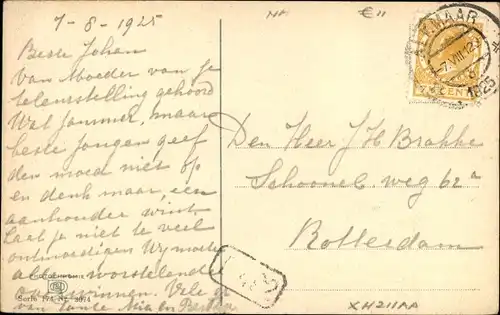 7-8-1925
Beste Johan
Van Moeder van je
teleurstelling gehoord
Wat jammer, maar
beste jongen geef
den moed niet op
en denk maar, een
aanhouder wint.
Laat je niet te veel
ontmoedigen Wij moeten
allen worstelende
overwinnen. Vele gr
van Tante Mia en
Serie 174 Nr. 2074
No
€11
ALKMAAR
7.VIII.12
1925
CENT
Den Heer J H Brakke
Schoonel. weg 62a
Rotterdam
XH211AA